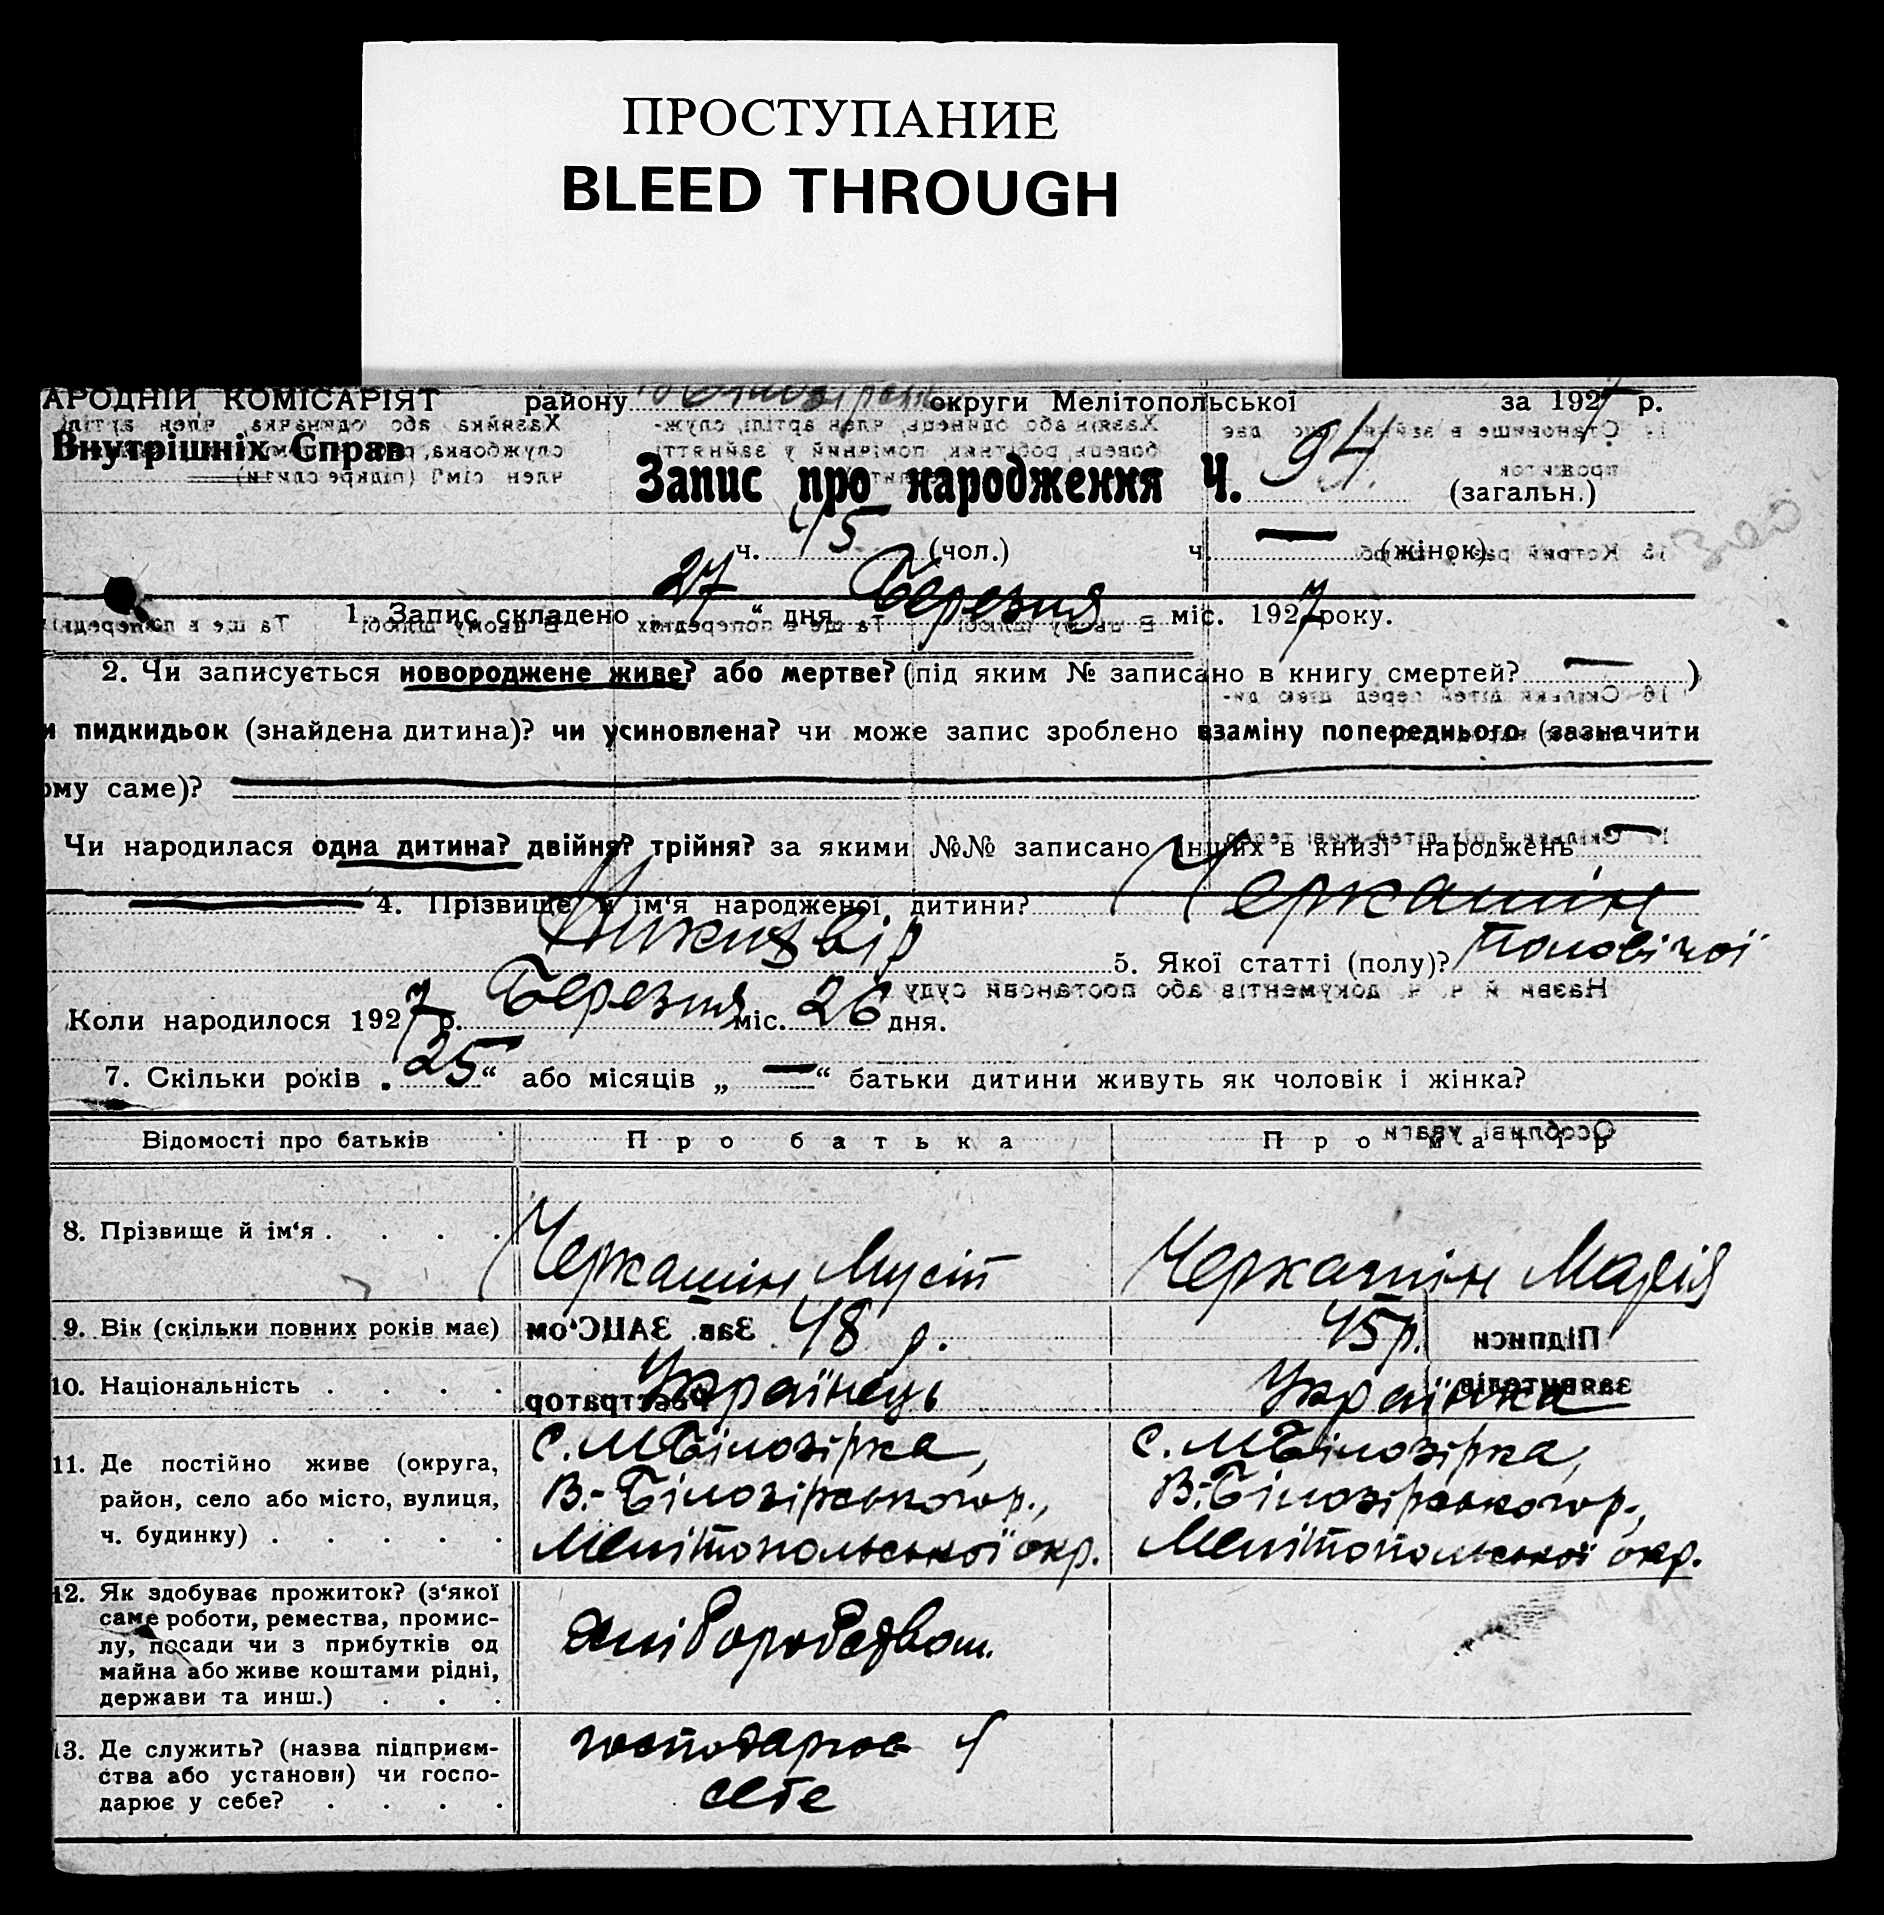 ПРОСТУПАНИЕ
BLEED THROUGH
АРОДНІЙ КОМІСАРІЯТ району округи Мелітопольської за 1927 р.
Внутрішніх Справ
Запис про народження Ч. 94 (загальн.)
ч. 45 (чол.) ч. — (жінок)
1. Запис складено „27“ дня Березня міс. 1927 року.
2. Чи записується новороджене живе? або мертве? (під яким № записано в книгу смертей? — )
и пидкидьок (знайдена дитина)? чи усиновлена? чи може запис зроблено взаміну попереднього (зазначити
ому саме)?
Чи народилася одна дитина? двійня? трійня? за якими №№ записано інших в книзі народжень —
4. Прізвище й ім'я народженої дитини? Черкашін
5. Якої статті (полу)? Половічої
Коли народилося 1927 р. Березня міс. 26 дня.
7. Скільки років „25“ або місяців „—“ батьки дитини живуть як чоловік і жінка?
Відомості про батьків Про батька Про матір
8. Прізвище й ім'я . . . . Черкашін Мусій Черкашін Марія
9. Вік (скільки повних років має) 48 р. 45 р.
10. Національність . . . . Українець Українка
11. Де постійно живе (округа, район, село або місто, вулиця, ч. будинку) . . . . .
с. М Білозірка, с. М Білозірка,
В.-Білозірського р., В.-Білозірського р.,
Мелітопольської окр. Мелітопольської окр.
12. Як здобуває прожиток? (з'якої
саме роботи, ремества, промис-
лу, посади чи з прибутків од
майна або живе коштами рідні,
держави та инш.) . . .
хліборобством.
13. Де служить? (назва підприєм-
ства або установи) чи госпо-
дарює у себе? . . . .
господарює у
себе